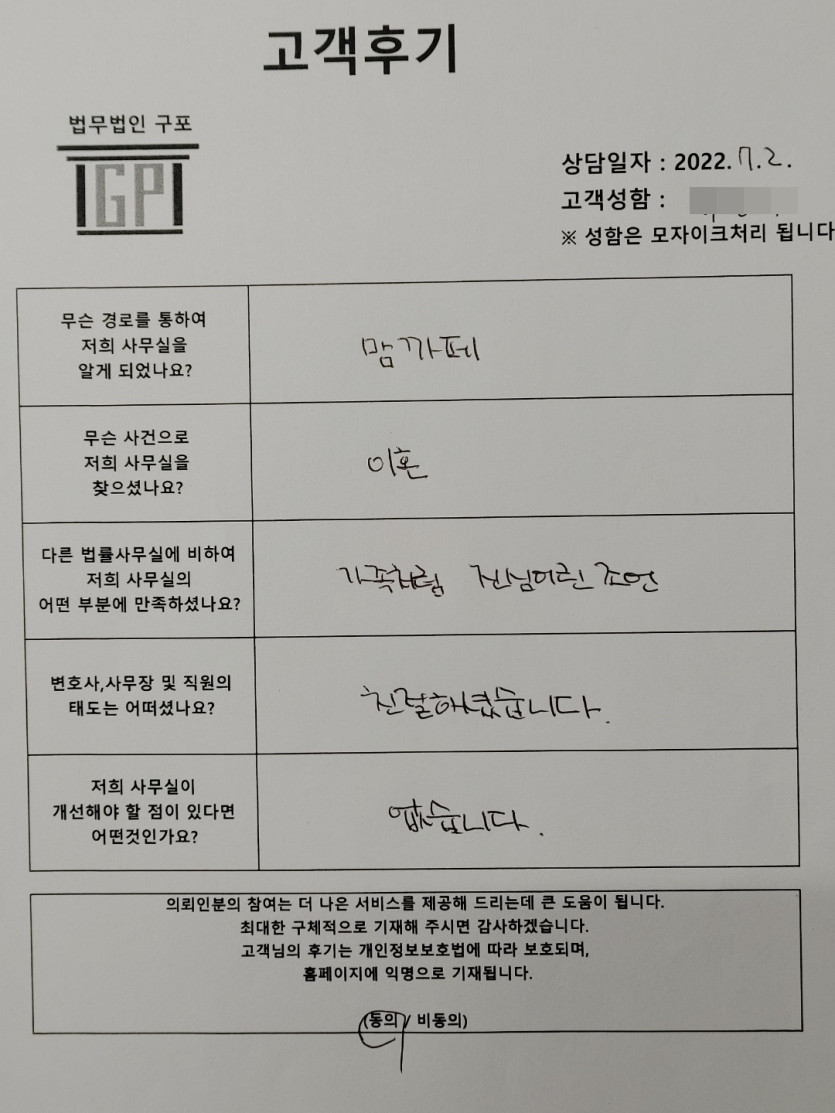 고객후기
법무법인 구포
GP
상담일자 : 2022. 7. 2.
고객성함 :
※ 성함은 모자이크처리 됩니다
무슨 경로를 통하여
저희 사무실을
알게 되었나요?
맘까페
무슨 사건으로
저희 사무실을
찾으셨나요?
이혼
다른 법률사무실에 비하여
저희 사무실의
어떤 부분에 만족하셨나요?
가족처럼 진심어린 조언
변호사,사무장 및 직원의
태도는 어떠셨나요?
친절하셨습니다.
저희 사무실이
개선해야 할 점이 있다면
어떤것인가요?
없습니다.
의뢰인분의 참여는 더 나은 서비스를 제공해 드리는데 큰 도움이 됩니다.
최대한 구체적으로 기재해 주시면 감사하겠습니다.
고객님의 후기는 개인정보보호법에 따라 보호되며,
홈페이지에 익명으로 기재됩니다.
(동의 / 비동의)